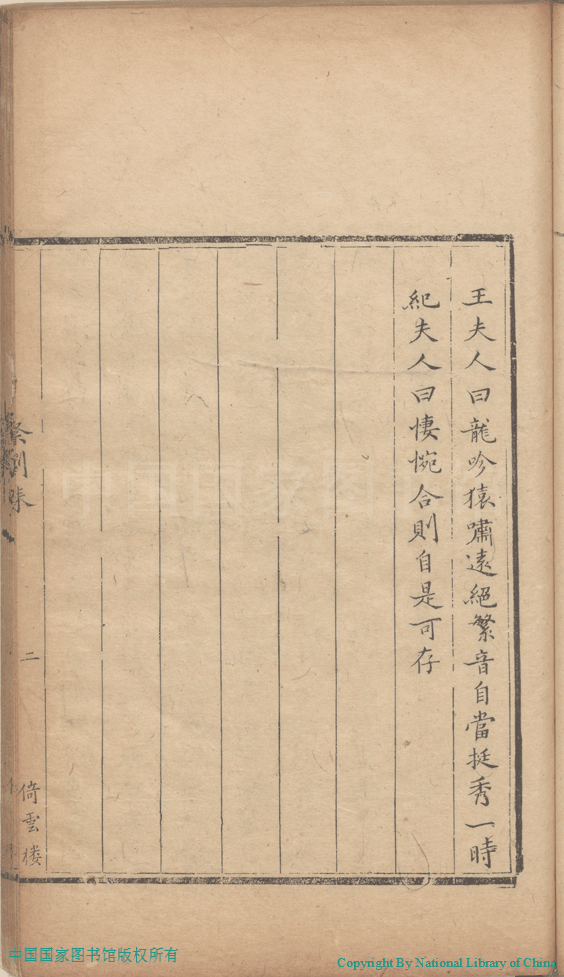 王夫人曰龍吟猿嘯遠絕繁音自當挺秀一時
紀夫人曰悽惋合則自是可存
二
倚雲楼
中国国家图书馆版权所有
Copyright By National Library of China